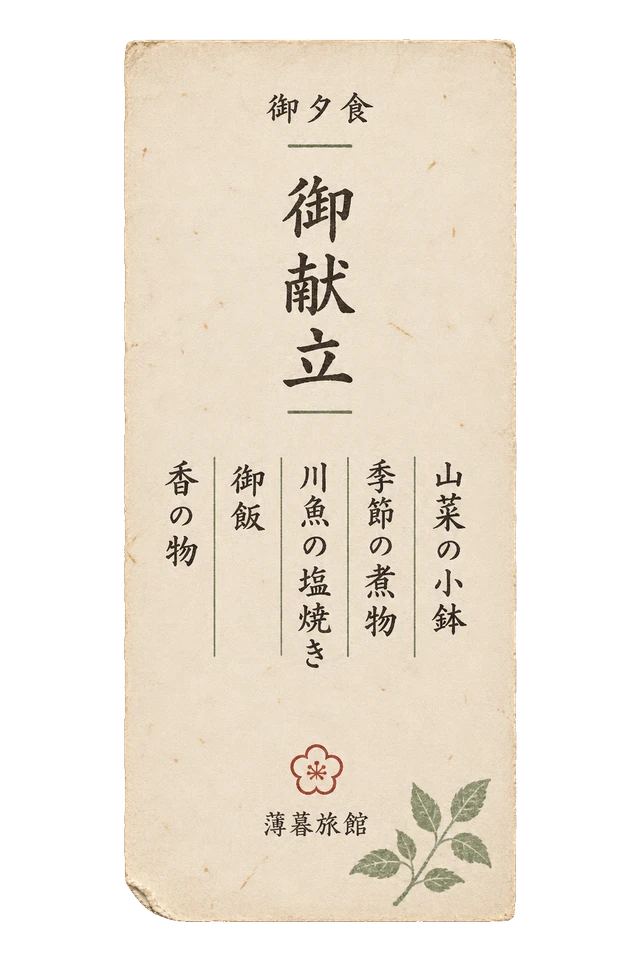 御夕食
御献立
山菜の小鉢
季節の煮物
川魚の塩焼き
御飯
香の物
薄暮旅館